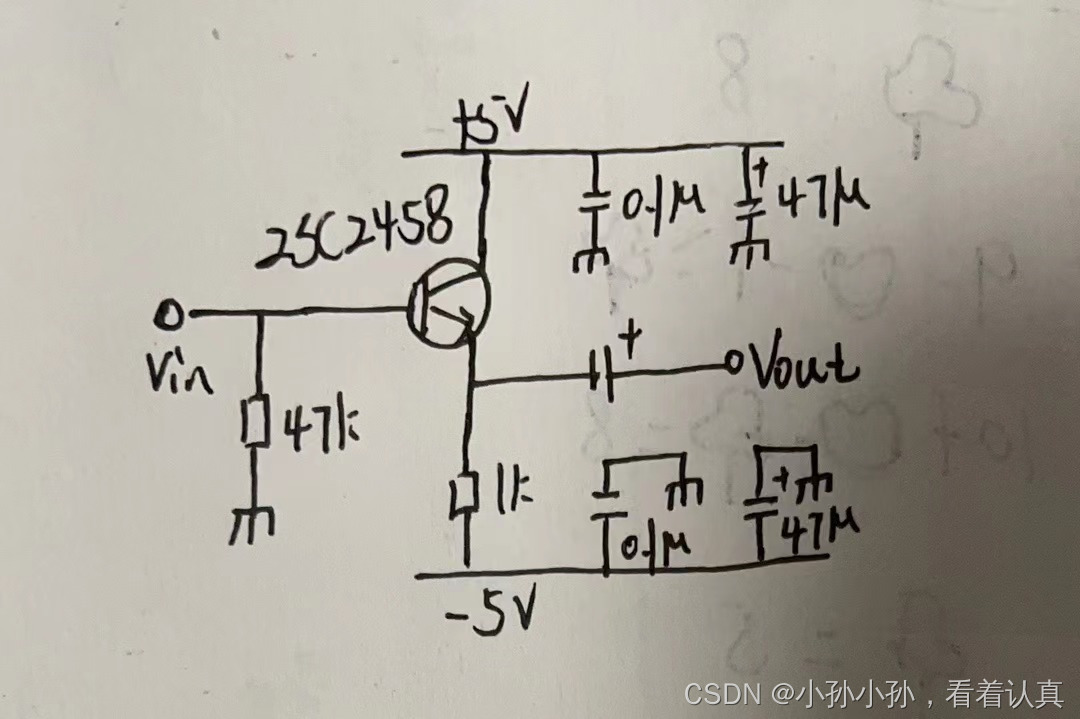 +5V
2SC2458
0.1μ
+
47μ
Vin
47k
+
Vout
1k
0.1μ
+
47μ
-5V
CSDN @小孙小孙，看着认真